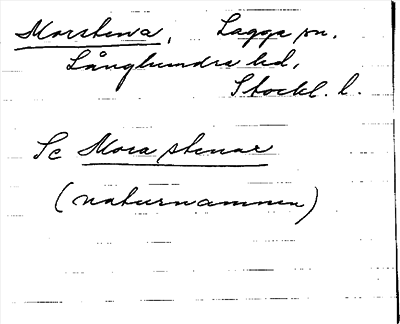 Morstena, Lagga sn,
Långhundra hd,
Stockh. l.
Se Mora stenar
(naturnamnen)